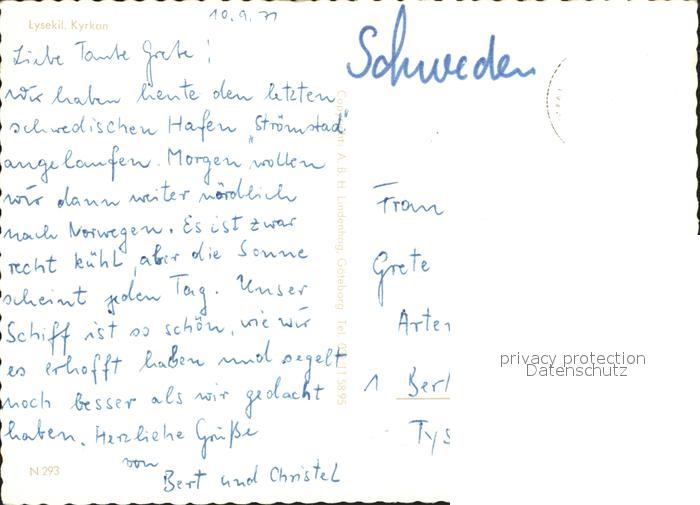 10.9.71
Lysekil. Kyrkan
Liebe Tante Grete!
wir haben heute den letzten
schwedischen Hafen "Strömstad"
angelaufen. Morgen wollen
wir dann weiter nördlich
nach Norwegen. Es ist zwar
recht kühl, aber die Sonne
scheint jeden Tag. Unser
Schiff ist so schön, wie wir
es erhofft haben und segelt
noch besser als wir gedacht
haben. Herzliche Grüße
von
Bert und Christel
N 293
Copyright: A. B. H. Lindenhag, Göteborg Tel.
Schweden
Frau
Grete
1 Berl
Tys
privacy protection
Datenschutz